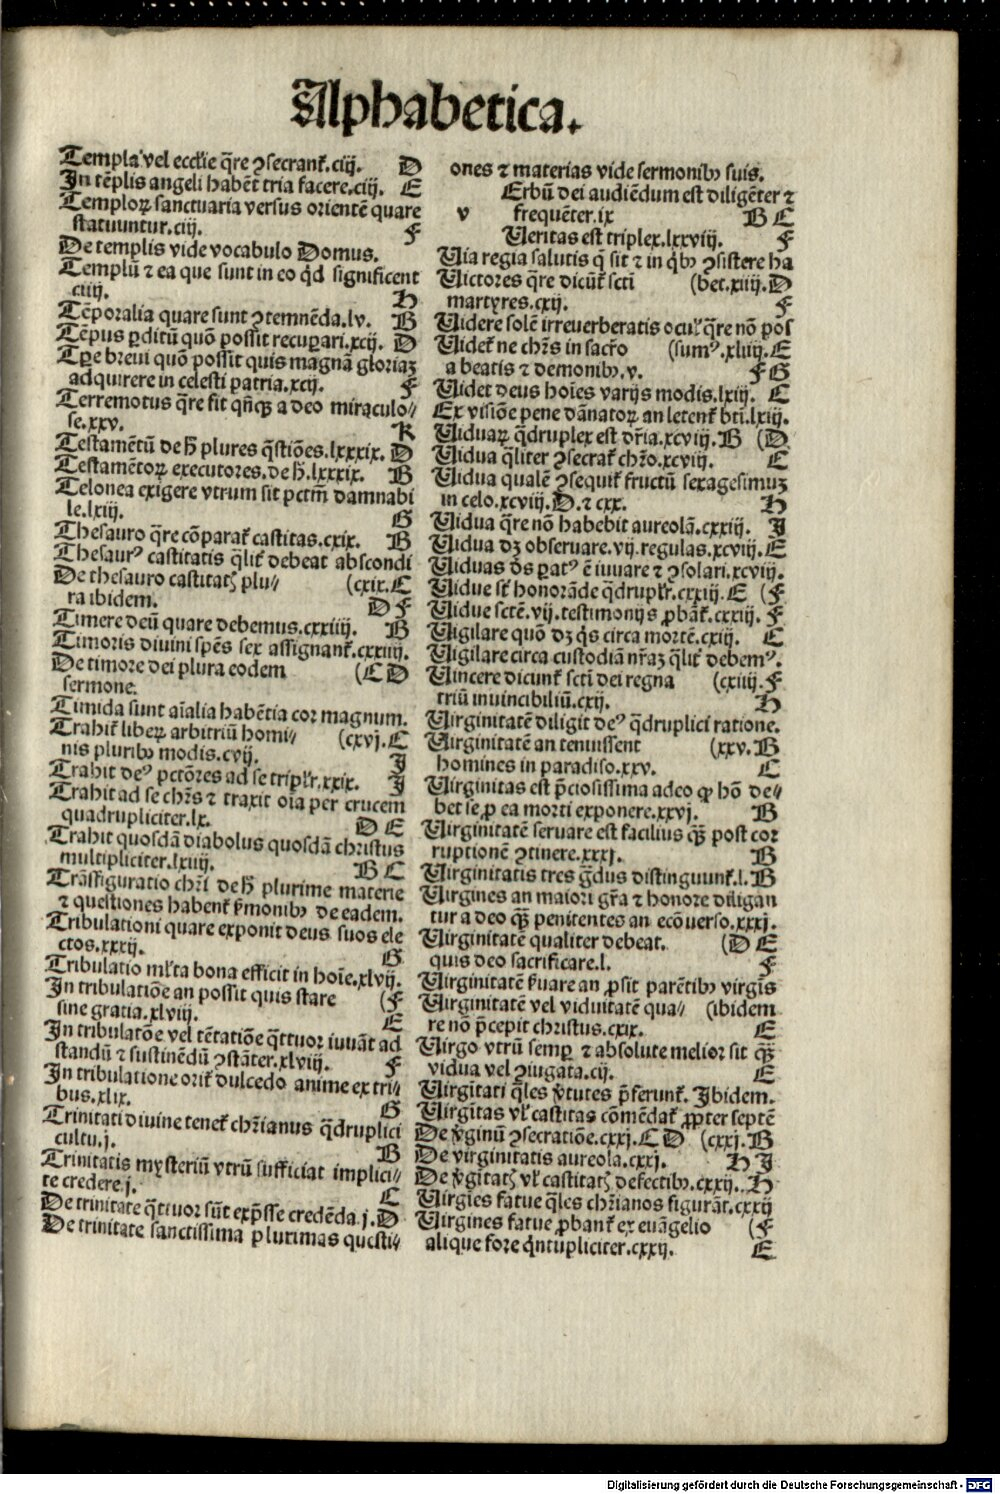 Alphabetica.
Templa vel eccl'ie q̄re ꝯsecrant᷑.ciij. D
In tēplis angeli habēt tria facere.ciij. E
Temploꝝ sanctuaria versus orientē quare
statuuntur.ciij. F
De templis vide vocabulo Domus.
Templū ⁊ ea que sunt in eo qd̄ significent
ciiij. H
Tēporalia quare sunt ꝯtemnēda.lv. B
Tēpus ꝑditū quō possit recuꝑari.xcij. D
Tꝑe breui quō possit quis magnā gloriaꝫ
adquirere in celesti patria.xcij. F
Terremotus q̄re fit qn̄qꝫ a deo miraculo⸗
se.xxv. K
Testamētū de h̄ plures q̄stiōes.lxxxix. D
Testamētoꝝ executores.de h̄.lxxxix. B
Telonea exigere vtrum sit pctm̄ damnabi
le.lxiij. G
Thesauro q̄re cōparat᷑ castitas.cxix. B
Thesaurꝰ castitatis q̄lit᷑ debeat abscondi
De thesauro castitatꝭ plu⸗ (cxix.C
ra ibidem. D F
Timere deū quare debemus.cxxiiij. B
Timoris diuini spēs sex assignant᷑.cxxiiij.
De timore dei plura eodem (C D
sermone.
Timida sunt aīalia habētia cor magnum.
Trahit᷑ libeꝝ arbitriū homi⸗ (cxvj.C
nis pluribꝰ modis.cvij. J
Trahit deꝰ pctōres ad se triplr̄.xxix. J
Trahit ad se chr̄s ⁊ traxit oīa per crucem
quadrupliciter.lx. D E
Trahit quosdā diabolus quosdā christus
multipliciter.lxiiij. B C
Trāsfiguratio chr̄i de h̄ plurime materie
⁊ questiones habent᷑ ẜmonibꝰ de eadem.
Tribulationi quare exponit deus suos ele
ctos.xxxij. G
Tribulatio ml'ta bona efficit in hoīe.xlvij.
In tribulatiōe an possit quis stare (F
sine gratia.xlviij. E
In tribulatōe vel tētatiōe q̄ttuor iuuāt ad
standū ⁊ sustinēdū ꝯstāter.xlviij. F
In tribulatione orit᷑ dulcedo anime ex tri⸗
bus.xlix. G
Trinitati diuine tenet᷑ chr̄ianus q̄druplici
cultu.j. B
Trinitatis mysteriū vtrū sufficiat implici⸗
te credere.j. C
De trinitate q̄ttuor sūt exp̄sse credēda.j. D
De trinitate sanctissima plurimas questi⸗
ones ⁊ materias vide sermonibꝰ suis.
v Erbū dei audiēdum est diligēter ⁊
frequēter.ix B C
Veritas est triplex.lxxviij. F
Via regia salutis q̄ sit ⁊ in q̄bꝰ ꝯsistere ha
Victores q̄re dicūt᷑ scti (bet.xiiij.D
martyres.cxij. F
Videre solē irreuerberatis ocul' q̄re nō pos
Videt᷑ ne chr̄s in sacr̄o (sumꝰ.xliiij.E
a beatis ⁊ demonibꝰ.v. F G
Videt deus hoīes varijs modis.lxiij. C
Ex visiōe pene dānatoꝝ an letent᷑ bt̄i.lxiij.
Viduaꝝ q̄druplex est dr̄ia.xcviij.B (D
Vidua q̄liter ꝯsecrat᷑ chr̄o.xcviij. E
Vidua qualē ꝯsequit᷑ fructū sexagesimuꝫ
in celo.xcviij.D.⁊ cxx. H
Vidua q̄re nō habebit aureolā.cxxiij. J
Vidua dꝫ obseruare.vij.regulas.xcviij.E
Viduas dn̄s ꝑatꝰ ē iuuare ⁊ ꝯsolari.xcviij.
Vidue st᷑ honorāde q̄druplr̄.cxxiij.E (F
Vidue sctē.vij.testimonijs ꝓbāt᷑.cxxiij. F
Vigilare quō dꝫ q̄s circa mortē.cxij. C
Vigilare circa custodiā nr̄aꝫ q̄lit᷑ debemꝰ.
Vincere dicunt᷑ scti dei regna (cxiij.F
triū inuincibiliū.cxij. H
Virginitatē diligit deꝰ q̄druplici ratione.
Virginitatē an tenuissent (xxv.B
homines in paradiso.xxv. C
Virginitas est p̄ciosissima adeo ꝙ hō de⸗
bet se ꝓ ea morti exponere.xxvj. B
Virginitatē seruare est facilius qꝫ post cor
ruptionē ꝯtinere.xxxj. B
Virginitatis tres gd̄us distinguunt᷑.l. B
Virgines an maiori gr̄a ⁊ honore diligan
tur a deo qꝫ penitentes an ecōuerso.xxxj.
Virginitatē qualiter debeat. (D E
quis deo sacrificare.l. F
Virginitatē ẜuare an ꝓsit parētibꝰ virgīs
Virginitatē vel viduitatē qua⸗ (ibidem
re nō p̄cepit christus.cxix. E
Virgo vtrū semꝑ ⁊ absolute melior sit qꝫ
vidua vel ꝯiugata.cij. E
Virgītati q̄les v̄tutes p̄ferunt᷑. Ibidem.
Virgītas vl' castitas cōmēdat᷑ ꝓpter septē
De v̄ginū ꝯsecratiōe.cxxj.C D (cxxj.B
De virginitatis aureola.cxxj. H J
De v̄gītatꝭ vl' castitatꝭ defectibꝰ.cxxij. H
Virgīes fatue q̄les chr̄ianos figurāt.cxxij
Virgines fatue ꝓbant᷑ ex euāgelio (F
alique fore qn̄tupliciter.cxxij. E
Digitalisierung gefördert durch die Deutsche Forschungsgemeinschaft - DFG